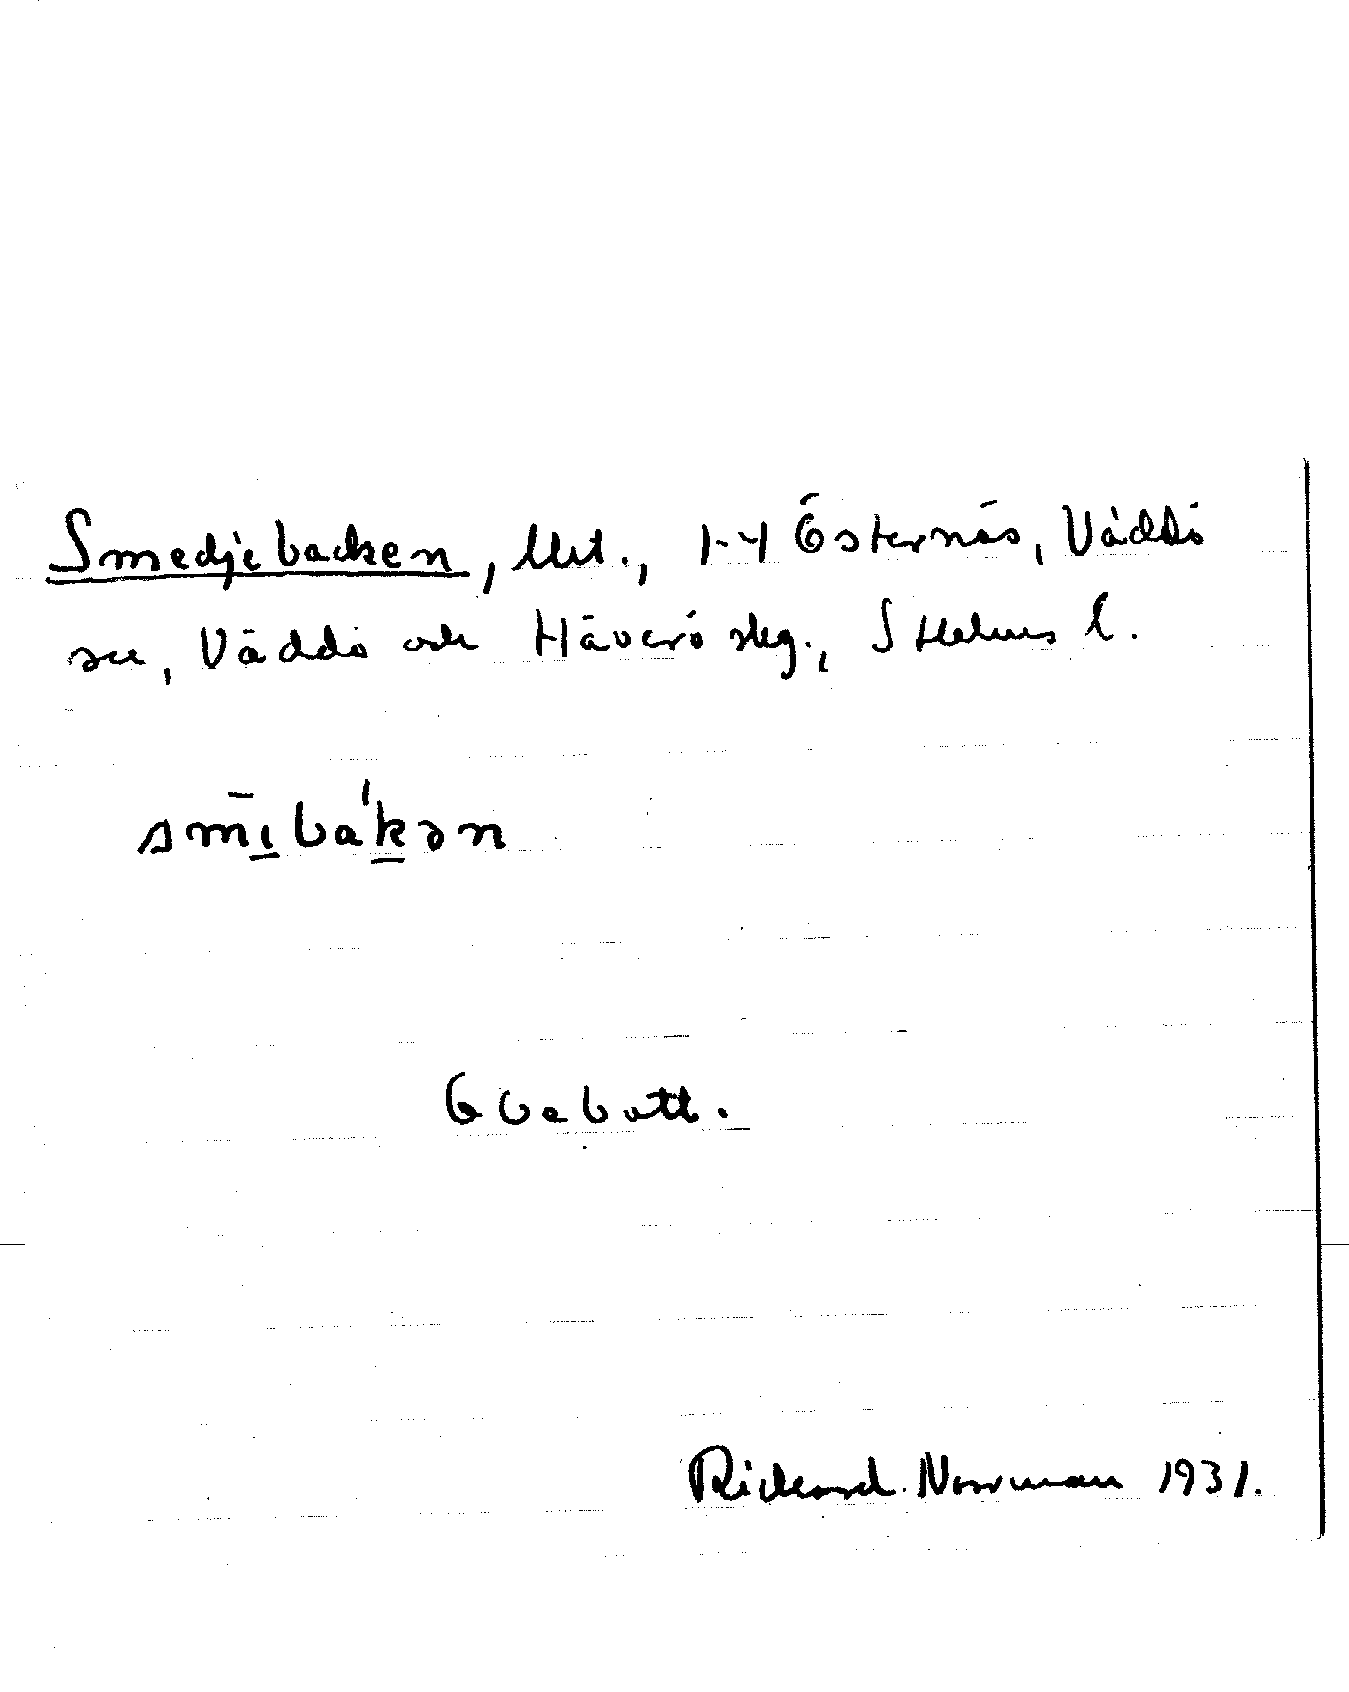 Smedjebacken, Urt., 1-4 Östernäs, Väddö
sn, Väddö och Häverö skg., Sthlms l.
smībákən
Obebott.
Rickard Norrman 1931.